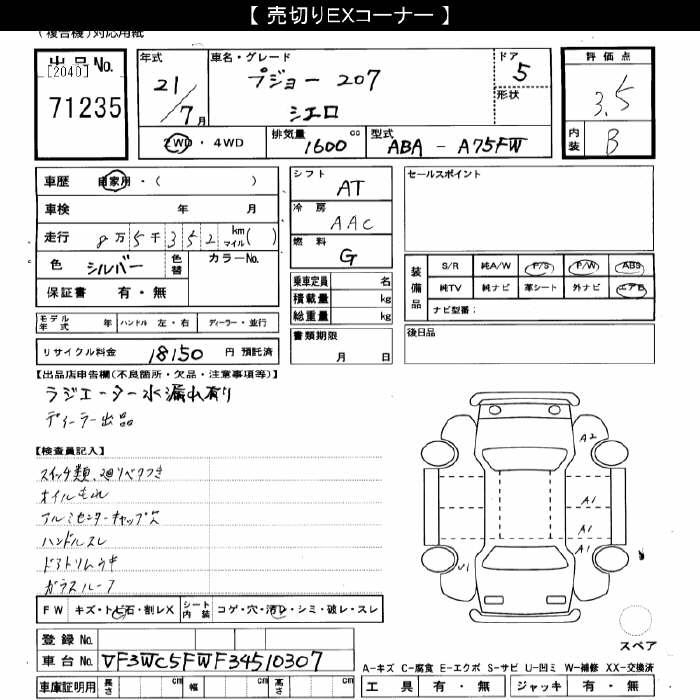 【 売切りEXコーナー 】
(複合機)対応用紙
出品 No.
[2040]
71235
年式 21/7月
車名・グレード プジョー 207 シエロ
ドア 5
形状
評価点 3.5
内装 B
2WD・4WD
排気量 1600 cc
型式 ABA - A75FW
車歴 自家用・( )
車検 年 月
走行 8万5千352 km マイル( )
色 シルバー 色替 カラーNo.
保証書 有・無
シフト AT
冷房 AAC
燃料 G
乗車定員 名
積載量 kg
総重量 kg
書類期限
月 日
セールスポイント
装備品 S/R 純A/W P/S P/W ABS
純TV 純ナビ 革シート 外ナビ エアB
ナビ型番:
後日品
モデル年式 年 ハンドル 左・右 ディーラー・並行
リサイクル料金 18150 円 預託済
【出品店申告欄(不良箇所・欠品・注意事項等)】
ラジエーター水漏れ有り
ディーラー出品
【検査員記入】
スイッチ類、廻りベタつき
オイルもれ
アルミセンターキャップ欠
ハンドルスレ
ドアトリムウキ
ガラスルーフ
A2
A1
A1
A1
U1
FW キズ・トビ石・割レX シート内装 コゲ・穴・汚レ・シミ・破レ・スレ
登録 No.
車台 No. VF3WC5FWF34510307
車庫証明用 長さ cm 幅 cm 高さ cm
スペア
A-キズ C-腐食 E-エクボ S-サビ U-凹ミ W-補修 XX-交換済
工具 有・無 ジャッキ 有・無